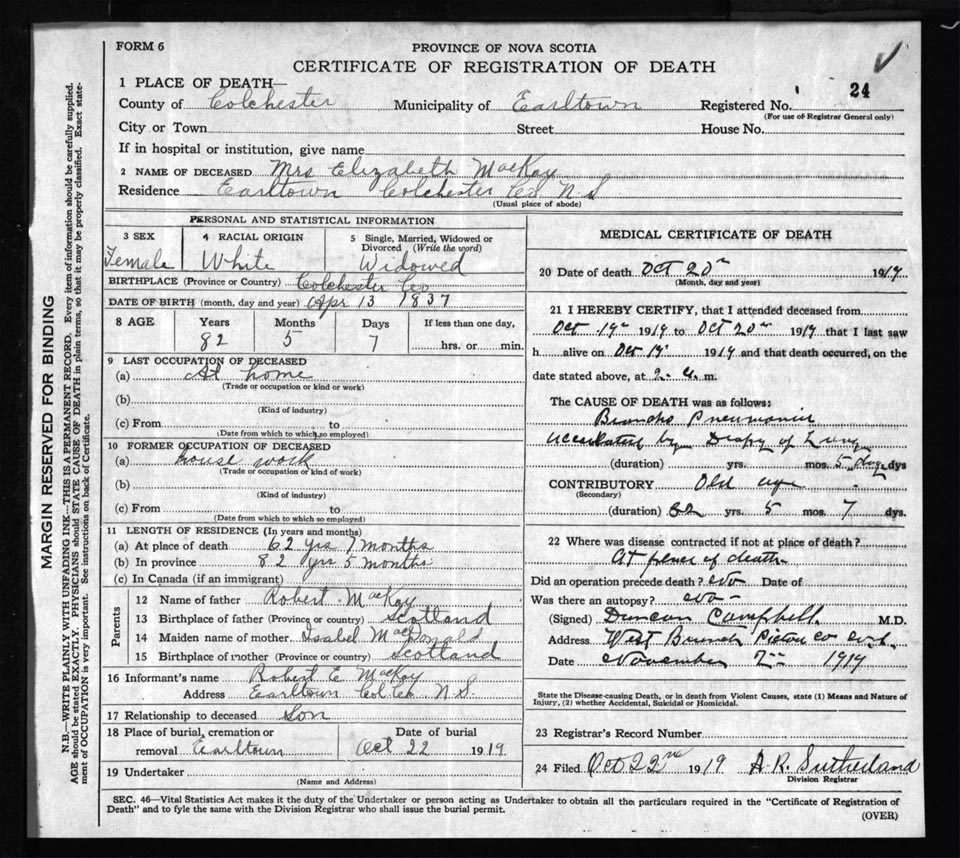 FORM 6
PROVINCE OF NOVA SCOTIA
CERTIFICATE OF REGISTRATION OF DEATH
24
1 PLACE OF DEATH—
County of Colchester Municipality of Earltown Registered No.
(For use of Registrar General only)
City or Town Street House No.
If in hospital or institution, give name
2 NAME OF DECEASED Mrs Elizabeth MacKay
Residence Earltown Colchester Co N.S
(Usual place of abode)
PERSONAL AND STATISTICAL INFORMATION
3 SEX 4 RACIAL ORIGIN 5 Single, Married, Widowed or Divorced (Write the word)
Female White Widowed
BIRTHPLACE (Province or Country) Colchester Co
DATE OF BIRTH (month, day and year) Apr 13 1837
8 AGE Years Months Days If less than one day,
82 5 7 hrs. or min.
9 LAST OCCUPATION OF DECEASED
(a) At home
(Trade or occupation or kind or work)
(b)
(Kind of industry)
(c) From to
(Date from which to which so employed)
10 FORMER OCCUPATION OF DECEASED
(a) house work
(Trade or occupation or kind of work)
(b)
(Kind of industry)
(c) From to
(Date from which to which so employed)
11 LENGTH OF RESIDENCE (In years and months)
(a) At place of death 62 yrs 7 months
(b) In province 82 yrs 5 months
(c) In Canada (if an immigrant)
Parents
12 Name of father Robert MacKay
13 Birthplace of father (Province or country) Scotland
14 Maiden name of mother Isabel MacDonald
15 Birthplace of mother (Province or country) Scotland
16 Informant's name Robert E MacKay
Address Earltown Col Co N.S.
17 Relationship to deceased Son
18 Place of burial, cremation or Date of burial
removal Earltown Oct 22 1919
19 Undertaker
(Name and Address)
MEDICAL CERTIFICATE OF DEATH
20 Date of death Oct 20th 1919
(Month, day and year)
21 I HEREBY CERTIFY, that I attended deceased from
Oct 19th 1919 to Oct 20th 1919 that I last saw
h alive on Oct 19th 1919 and that death occurred, on the
date stated above, at 2 a. m.
The CAUSE OF DEATH was as follows:
Broncho Pneumonia
by Dropsy of Lung
(duration) yrs. mos. 5 days dys
CONTRIBUTORY Old age
(Secondary)
(duration) 82 yrs. 5 mos. 7 dys.
22 Where was disease contracted if not at place of death?
At place of death
Did an operation precede death? No Date of
Was there an autopsy? No
(Signed) Duncan Campbell M.D.
Address West Branch Pictou Co N.S.
Date November 2nd 1919
State the Disease-causing Death, or in death from Violent Causes, state (1) Means and Nature of
Injury, (2) whether Accidental, Suicidal or Homicidal.
23 Registrar's Record Number
24 Filed Oct 22nd 1919 A. R. Sutherland
Division Registrar
SEC. 46—Vital Statistics Act makes it the duty of the Undertaker or person acting as Undertaker to obtain all the particulars required in the "Certificate of Registration of
Death" and to fyle the same with the Division Registrar who shall issue the burial permit.
(OVER)
MARGIN RESERVED FOR BINDING
N.B.—WRITE PLAINLY WITH UNFADING INK—THIS IS A PERMANENT RECORD. Every item of information should be carefully supplied.
AGE should be stated EXACTLY. PHYSICIANS should STATE CAUSE OF DEATH in plain terms, so that it may be properly classified. Exact state-
ment of OCCUPATION is very important. See instructions on back of Certificate.